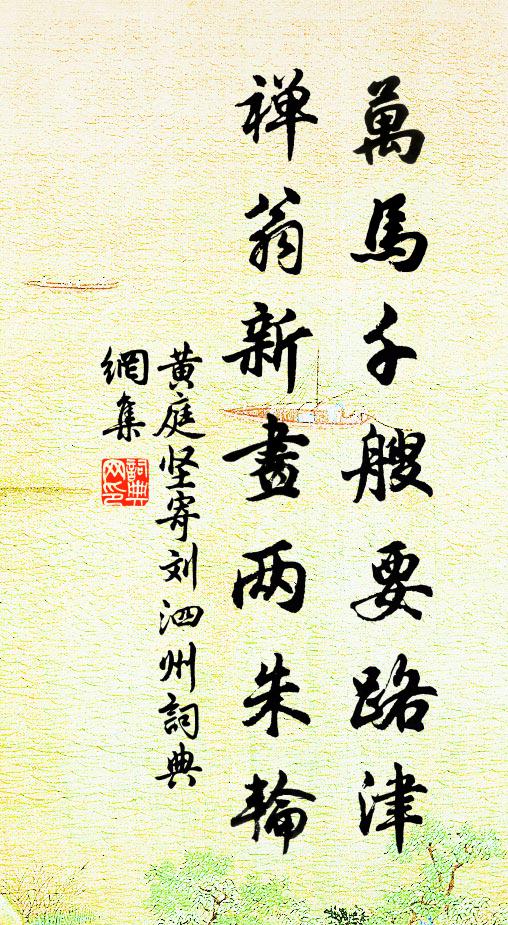 萬馬千艘要路津
禅翁新畫两朱輪
黄庭坚寄刘泗州詞典
網集
詞典网印